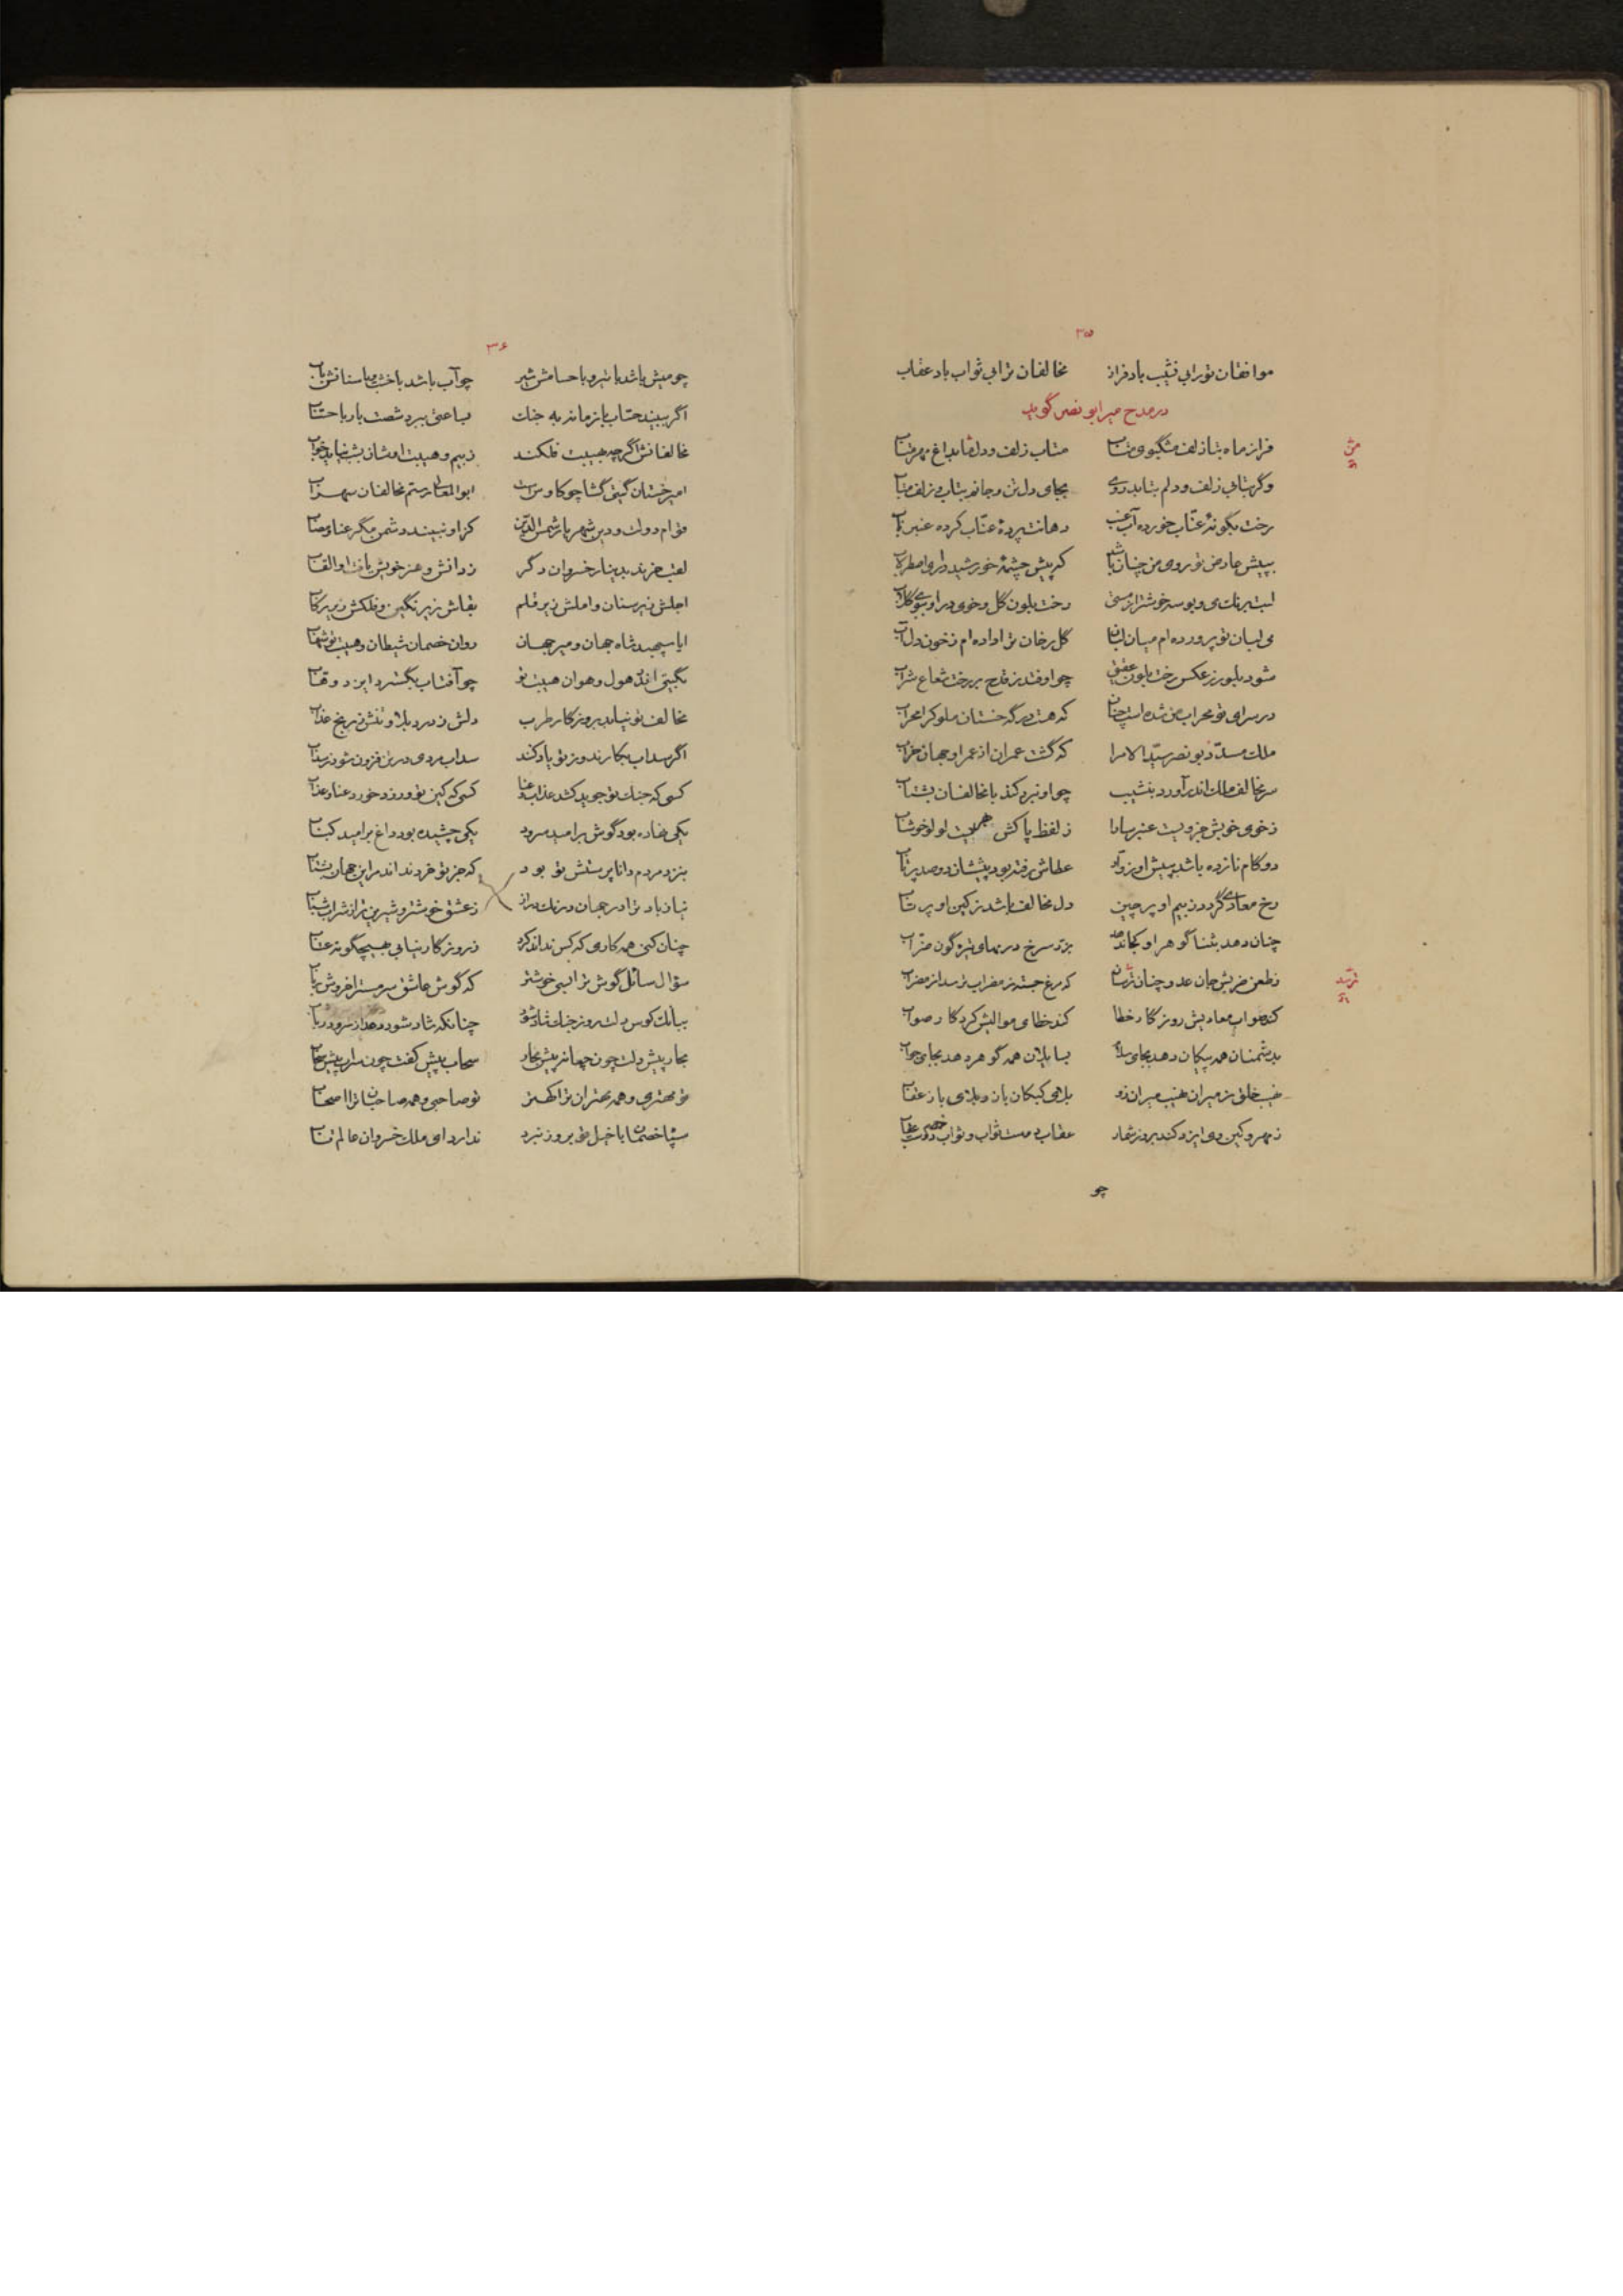 ۳۵
موافقان تو را بی نشیب باد فراز مخالفان ترا بی ثواب باد عقاب
در مدح میر ابو نصر گوید
فراز ماه متاب زلف مشگبوی متاب متاب زلف و دلم را بداغ مهر متاب
وگر بتابی زلف و دلم بتابد روی بجای دل تن و جانم بتاب و زلف متاب
رخت بگونهٔ عناب خورده آب عنب دهانت پردهٔ عناب کرده عنبر ناب
به پیش عارض تو روی من چنان باشد که پیش چشمهٔ خورشید داری اصطرلاب
لبت برنگ می و بوسه خوشتر از مستی رخت بلون گل و خوی در او ببوی گلاب
می لبان تو پرورده‌ام میان لبان گل رخان ترا داده‌ام ز خون دل آب
شود بلور ز عکس رخت بلون عقیق چو اوفتد ز قدح بر رخت شعاع شراب
در سرای تو محراب من شده است چنان که هست درگه خسته‌ان ملوک را محراب
ملک مسدد بو نصر سید الامرا که گشت عمران از عمر او جهان خراب
سر مخالف ملک اندر آورد بنشیب چو او نبرد کند با مخالفان بشتاب
ز خوی خویش جزویست عنبر سارا ز لفظ پاکش همچیست لولو خوشاب
دو کام نازده باشد به پیش او زوار عطاش رفته بود پیششان دو صد پرتاب
رخ معادی گردد ز بیم او پر چین دل مخالف باشد ز کین او پر تاب
چنان دهد بثنا گوهر او کجا ندهد بزد سرخ درمهای تیره گون ضراب
ز طعن ضربش جان عدو چنان ترسان که مرغ جسته ز مضراب ترسد از مضراب
کند صواب معادیش روزگار خطا کند خطای موالیش کردگار صواب
بدشمنان همه پیکان دهد بجای سلام بسایلان همه گوهر دهد بجای جواب
نصیب خلق ز میران نصیب میران زو بلای کبکان باز و بلای باز عقاب
ز مهر و کین وی ایزد کند بروز شمار
چو
۳۶
چو میش باشد با نیرو با حسامش شیر چو آب باشد با خشت و با سنانش ناب
اگر ببیند حساب با زمانه به جنگ بساعتی ببرد شصت بار با حساب
مخالفانش اگر چه بهیبت فلکند ز بیم و هیبت او شان بشب نیاید خواب
امیر خستان گیتی گشا چو کاوس است ابوالمعالی رستم مخالفان سهراب
قوام دولت و دین شهریار شمس الدین کز او نبیند دشمن مگر عنا و عذاب
لقب خرند بدینار خسروان دگر ز دانش و هنر خویش یافت او القاب
اجلش زیر سنان و املش زیر قلم بقاش زیر نگین و فلکش زیر رکاب
ایا سپهبد شاه جهان و میر جهان روان خصمان شیطان و هیبت تو شهاب
بگیتی افتد هول و هوان هیبت تو چو آفتاب بگسترد این دو قتاب
مخالف تو نیابد بروزگار طرب دلش ز درد بلا و تنش ز رنج عذاب
اگر سداب بکارند و ز تو یاد کند سداب مردی در تن فزون شود ز سداب
کسی که جنگ تو جوید کشد عذاب و عنا کسی که کین تو ورزد خورد عنا و عذاب
یکی نهاده بود گوش بر امید سرود یکی چشیده بود داغ بر امید کباب
بنزد مردم دانا پرستش تو بود که جز تو خرند اندر این جهان بشتاب
نیاز باد ترا در جهان درنگ دراز ز عشق خوشتر و شیرین‌تر از شراب شباب
چنان کنی همه کاری که کس نداند کرد ز روزگار نیابی بهیچگونه عتاب
سؤال سائل گوش ترا بسی خوشتر که گوش عاشق سرمست را خروش رباب
ببانگ کوس دلت روز جنگ شاد شود چنانکه شاد شود دعد از سرود رباب
بحار پیش دلت چون جهانه پیش بحار سحاب پیش کفت چون سراب پیش سحاب
تو مهتری و همه مهتران ترا کهتر تو صاحبی و همه صاحبان ترا اصحاب
سپاه خصمان با خیل تو بروز نبرد ندارد ای ملک خسروان عالم تاب